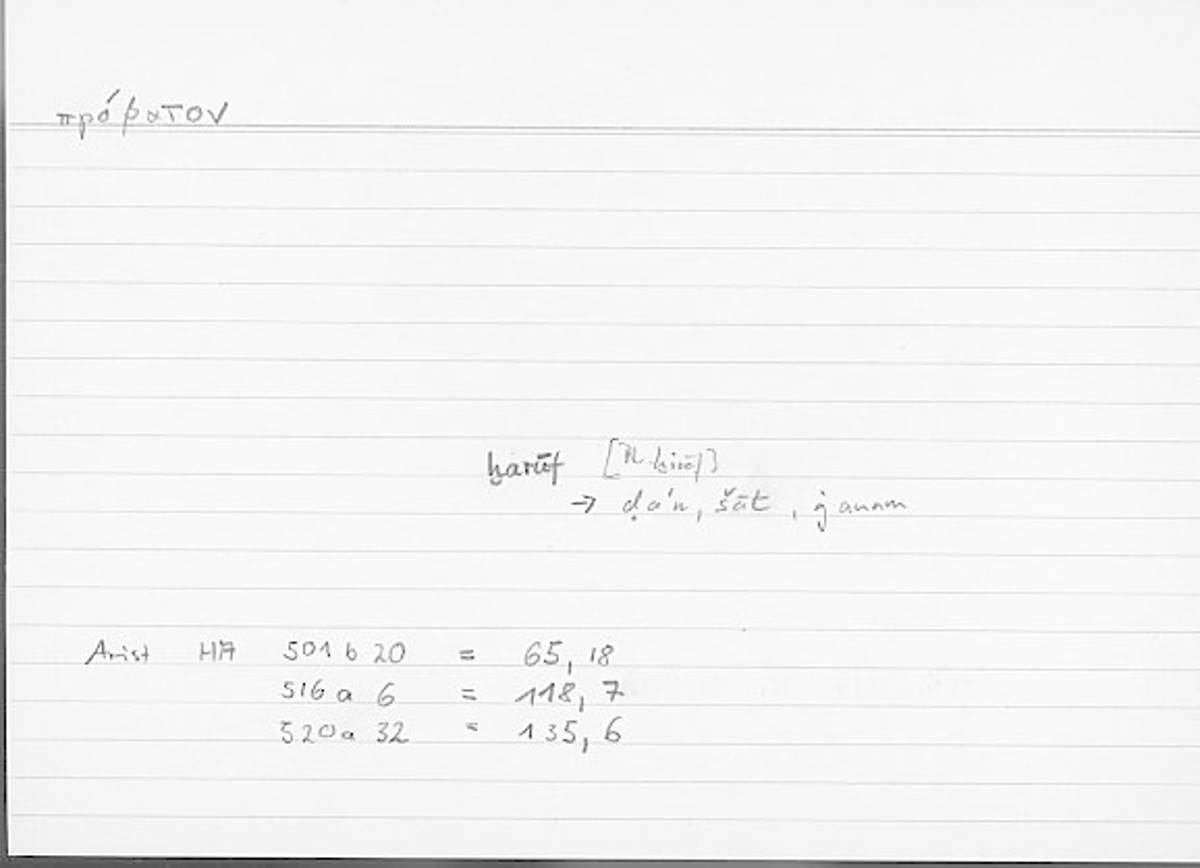 πρόβατον
ḫarūf
→ ḍa'n, šāt, ġanam
Arist HA 501 b 20 = 65, 18
516 a 6 = 118, 7
520 a 32 = 135, 6